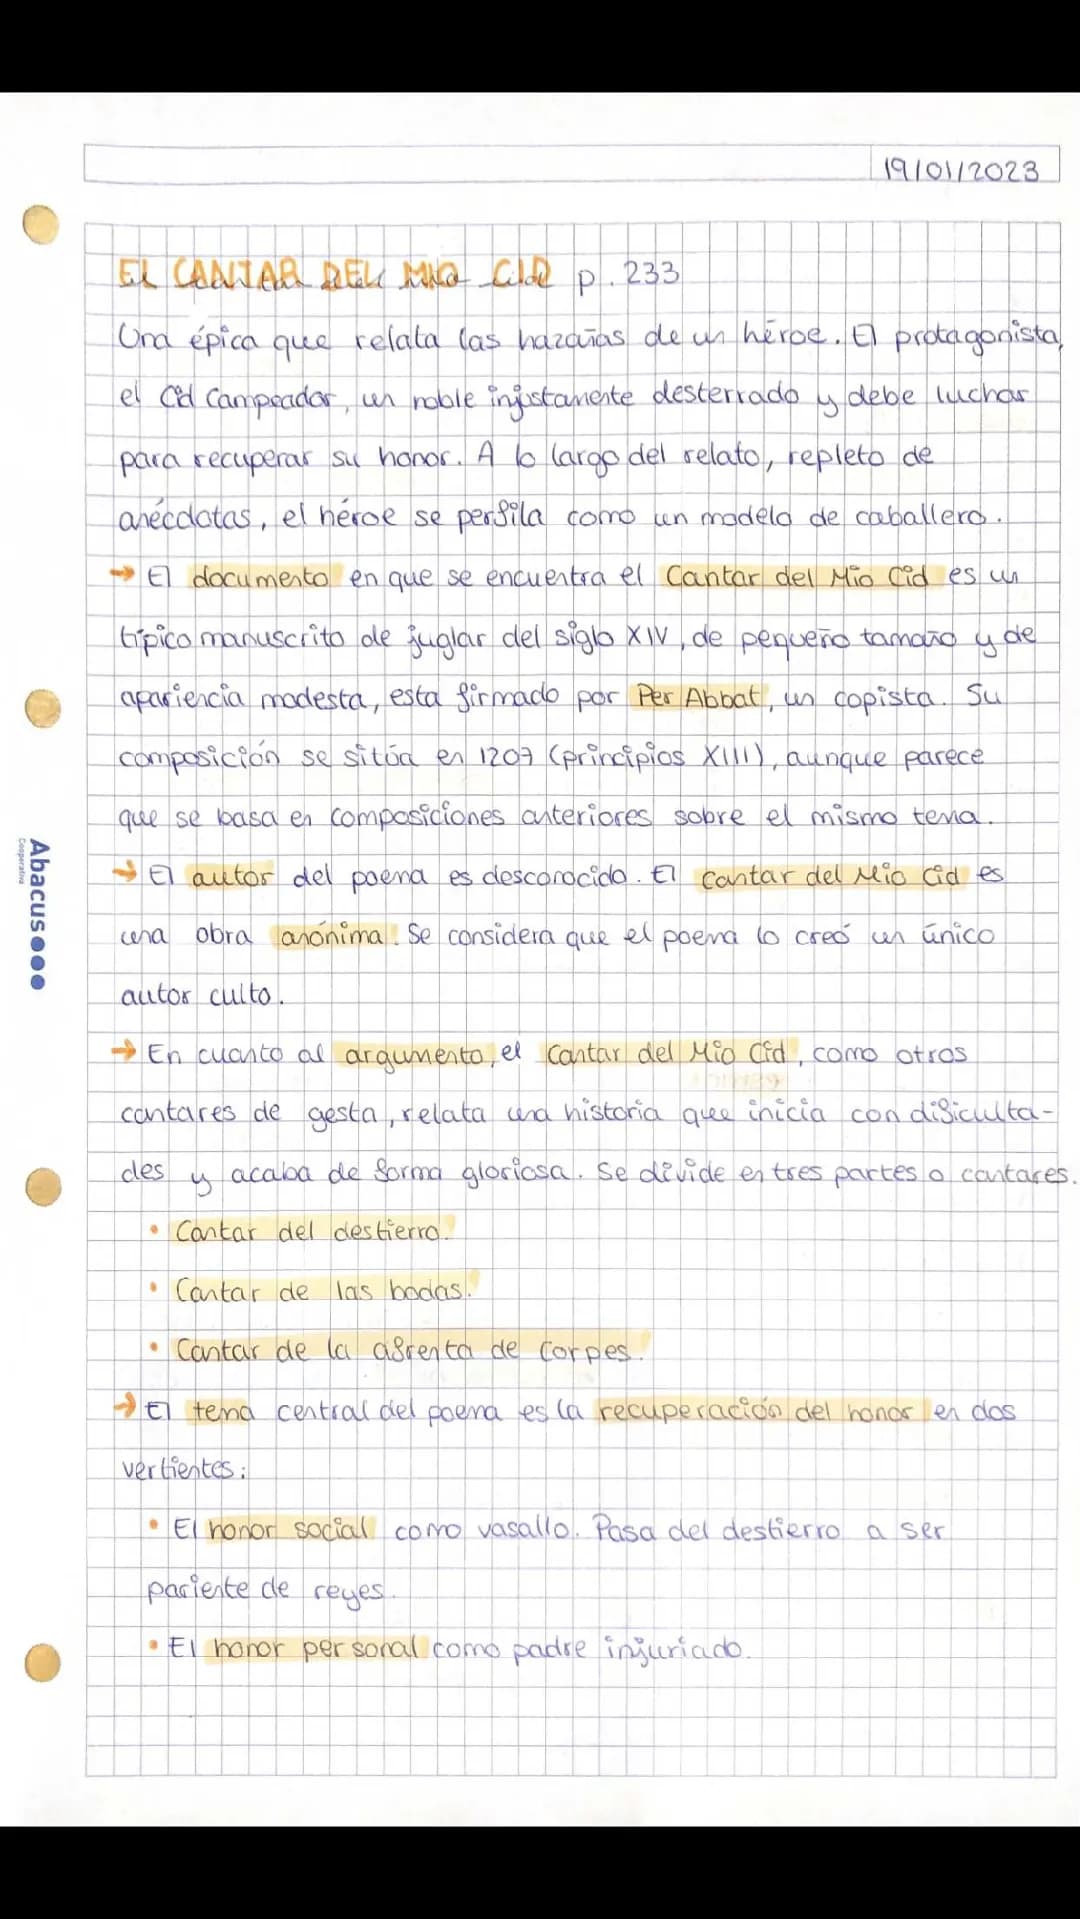 19/01/2023
EL CANTAR DEL MIO CID p. 233
Una épica que relata las hazañas de un héroe. El protagonista,
el Cid Campeador, un noble injustamente desterrado y debe luchar
para recuperar su honor. A lo largo del relato, repleto de
anécdotas, el héroe se perfila como un modelo de caballero.
→ El documento en que se encuentra el Cantar del Mio Cid es un
típico manuscrito de juglar del siglo XIV, de pequeño tamaño y de
apariencia modesta, esta firmado por Per Abbat, un copista. Su
composición se sitúa en 1207 (principios XIII), aunque parece
que se basa en composiciones anteriores sobre el mismo tema.
→ El autor del poema es desconocido. El Cantar del Mio Cid es
una obra anónima. Se considera que el poema lo creó un único
autor culto.
→ En cuanto al argumento, el Cantar del Mio Cid, como otros
cantares de gesta, relata una historia que inicia con dificulta-
des y acaba de forma gloriosa. Se divide en tres partes o cantares.
• Cantar del destierro.
• Cantar de las bodas.
• Cantar de la afrenta de Corpes.
→ El tema central del poema es la recuperación del honor en dos
vertientes:
• El honor social como vasallo. Pasa del destierro a ser
pariente de reyes.
• El honor personal como padre injuriado.
Abacus
Cooperativa